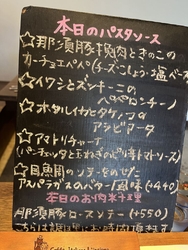 本日のパスタソース
☆那須豚挽肉ときのこの
カーチョエペペ(チーズ・こしょう・塩ベース)
☆イワシとズッキーニの
ペペロンチーノ
☆ホタルイカとタケノコの
アラビアータ
☆アマトリチャーナ
(パンチェッタと玉ねぎのピリ辛トマトソース)
☆目鯛のソテーをのせた
アスパラガスのバター風味(+440)
本日のお肉料理
那須豚ロースソテー(+550)